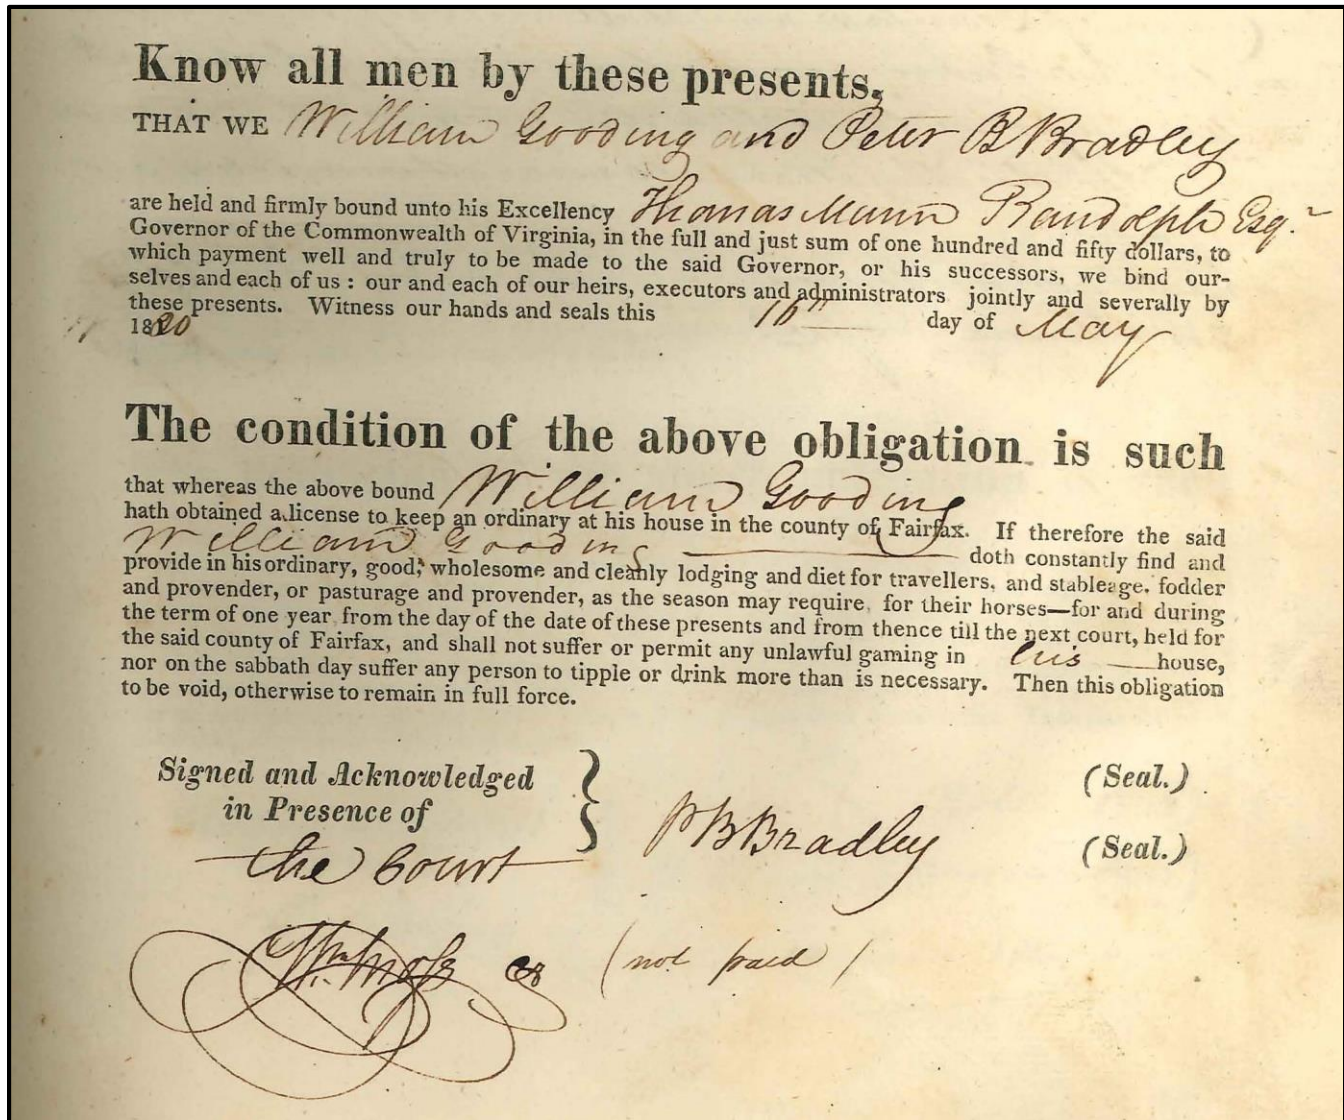 Know all men by these presents,
THAT WE William Gooding and Peter B Bradley
are held and firmly bound unto his Excellency Thomas Mann Randolph Esqr
Governor of the Commonwealth of Virginia, in the full and just sum of one hundred and fifty dollars, to
which payment well and truly to be made to the said Governor, or his successors, we bind our-
selves and each of us : our and each of our heirs, executors and administrators jointly and severally by
these presents. Witness our hands and seals this day of May
1820
The condition of the above obligation is such
that whereas the above bound William Gooding
hath obtained a license to keep an ordinary at his house in the county of Fairfax. If therefore the said
William Gooding doth constantly find and
provide in his ordinary, good, wholesome and cleanly lodging and diet for travellers, and stableage, fodder
and provender, or pasturage and provender, as the season may require, for their horses—for and during
the term of one year from the day of the date of these presents and from thence till the next court, held for
the said county of Fairfax, and shall not suffer or permit any unlawful gaming in his house,
nor on the sabbath day suffer any person to tipple or drink more than is necessary. Then this obligation
to be void, otherwise to remain in full force.
Signed and Acknowledged (Seal.)
in Presence of PB Bradley
the Court (Seal.)
Wm Moss (not paid)